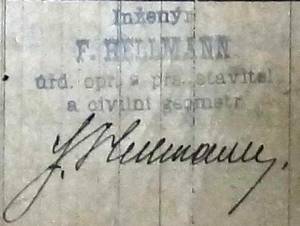 Inženýr
F. HELLMANN
úřd. opr. a stavitel
a civilní geometr
F. Hellmann.